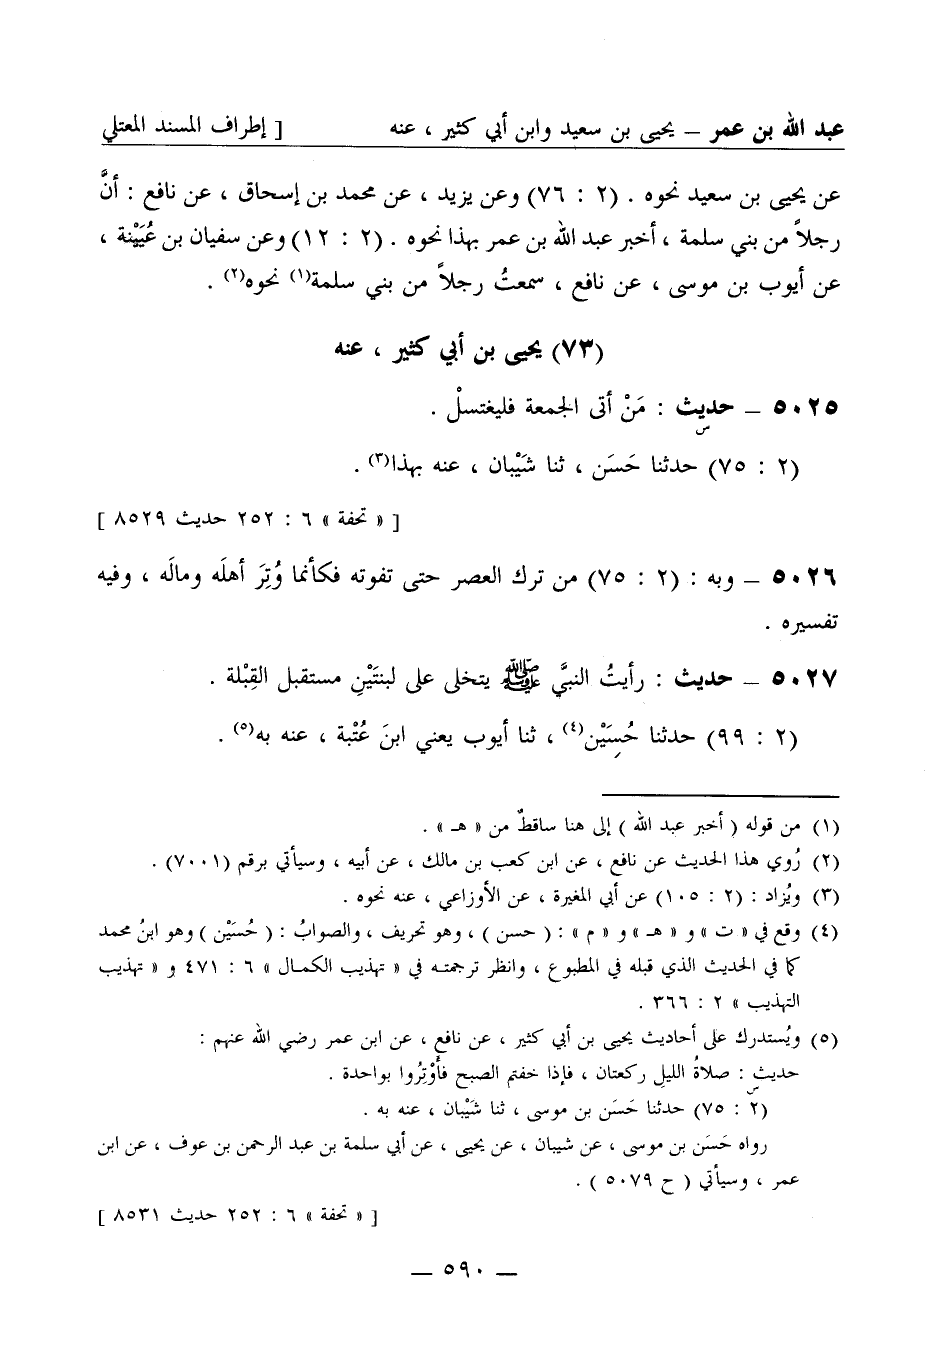 عبد الله بن عمر – يحيى بن سعيد وابن أبي كثير ، عنه [ إطراف المسند المعتلي
عن يحيى بن سعيد نحوه . (٢ : ٧٦) وعن يزيد ، عن محمد بن إسحاق ، عن نافع : أنَّ
رجلاً من بني سلمة ، أخبر عبد الله بن عمر بهذا نحوه . (٢ : ١٢) وعن سفيان بن عُيَيْنة ،
عن أيوب بن موسى ، عن نافع ، سمعتُ رجلاً من بني سلمة(١) نحوه(٢) .
(٧٣) يحيى بن أبي كثير ، عنه
٥٠٢٥ – حديث : مَنْ أتى الجمعة فليغتسلْ .
س
(٢ : ٧٥) حدثنا حَسَن ، ثنا شَيْبان ، عنه بهذا(٣) .
[ « تحفة » ٦ : ٢٥٢ حديث ٨٥٢٩ ]
٥٠٢٦ – وبه : (٢ : ٧٥) من ترك العصر حتى تفوته فكأنما وُتِرَ أهلَه ومالَه ، وفيه
تفسيره .
٥٠٢٧ – حديث : رأيتُ النبيَّ ﷺ يتخلى على لبنتَيْنِ مستقبل القِبْلة .
(٢ : ٩٩) حدثنا حُسَيْن(٤) ، ثنا أيوب يعني ابنَ عُتْبة ، عنه به(٥) .
(١) من قوله ( أخبر عبد الله ) إلى هنا ساقطٌ من « هـ » .
(٢) رُوي هذا الحديث عن نافع ، عن ابن كعب بن مالك ، عن أبيه ، وسيأتي برقم (٧٠٠١) .
(٣) ويُزاد : (٢ : ١٠٥) عن أبي المغيرة ، عن الأوزاعي ، عنه نحوه .
(٤) وقع في « ت » و « هـ » و « م » : ( حسن ) ، وهو تحريف ، والصوابُ : ( حُسَيْن ) وهو ابنُ محمد
كما في الحديث الذي قبله في المطبوع ، وانظر ترجمتـه في « تهذيب الكمـال » ٦ : ٤٧١ و « تهذيب
التهذيب » ٢ : ٣٦٦ .
(٥) ويُستدرك على أحاديث يحيى بن أبي كثير ، عن نافع ، عن ابن عمر رضي الله عنهم :
حديث : صلاةُ الليلِ ركعتان ، فإذا خفتم الصبح فأَوْتِرُوا بواحدة .
س
(٢ : ٧٥) حدثنا حَسَن بن موسى ، ثنا شَيْبان ، عنه به .
رواه حَسَن بن موسى ، عن شيبان ، عن يحيى ، عن أبي سلمة بن عبد الرحمن بن عوف ، عن ابن
عمر ، وسيأتي ( ح ٥٠٧٩ ) .
[ « تحفة » ٦ : ٢٥٢ حديث ٨٥٣١ ]
– ٥٩٠ –